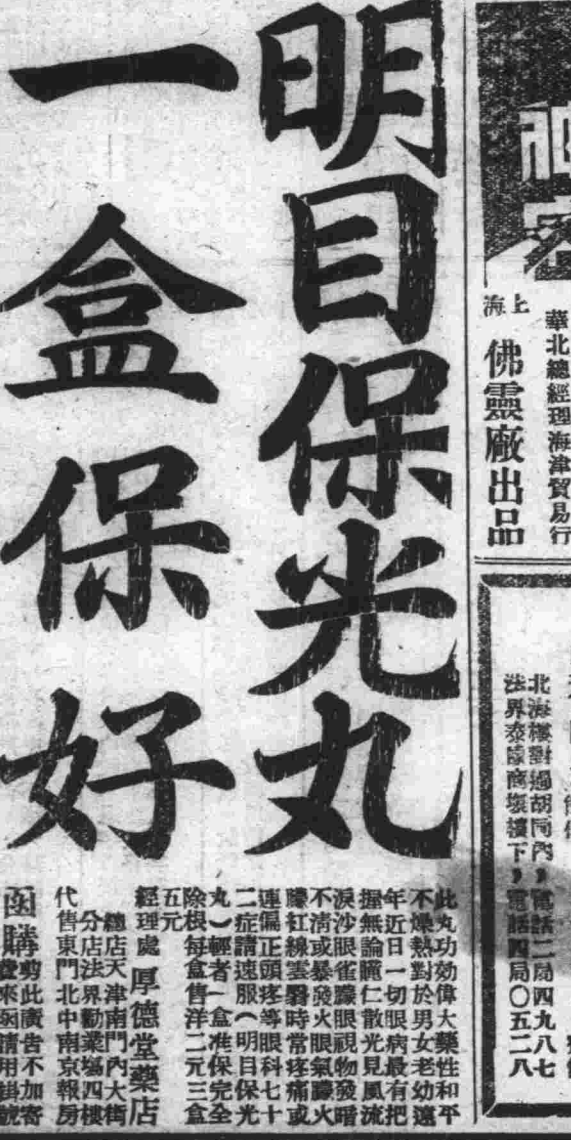 華北總經理海津貿易行
上海
佛靈廠出品
北海樓對過胡同內，電話二局四九八七
法界泰康商塲樓下，電話四局〇五二八
明目保光丸
一盒保好
此丸功効偉大藥性和平
不燥熱對於男女老幼遠
年近日一切眼病最有把
握無論瞳仁散光見風流
淚沙眼雀朦眼視物發暗
不清或暴發火眼氣朦火
朦紅線雲翳時常疼痛或
連偏正頭疼等眼科七十
二症請速服（明目保光
丸）輕者一盒准保完全
除根每盒售洋二元三盒
五元
經理處 厚德堂藥店
總店天津南門內大街
分店法界勸業塲四樓
代售東門北中南京報房
函購剪此廣告不加寄
費來函請用掛號